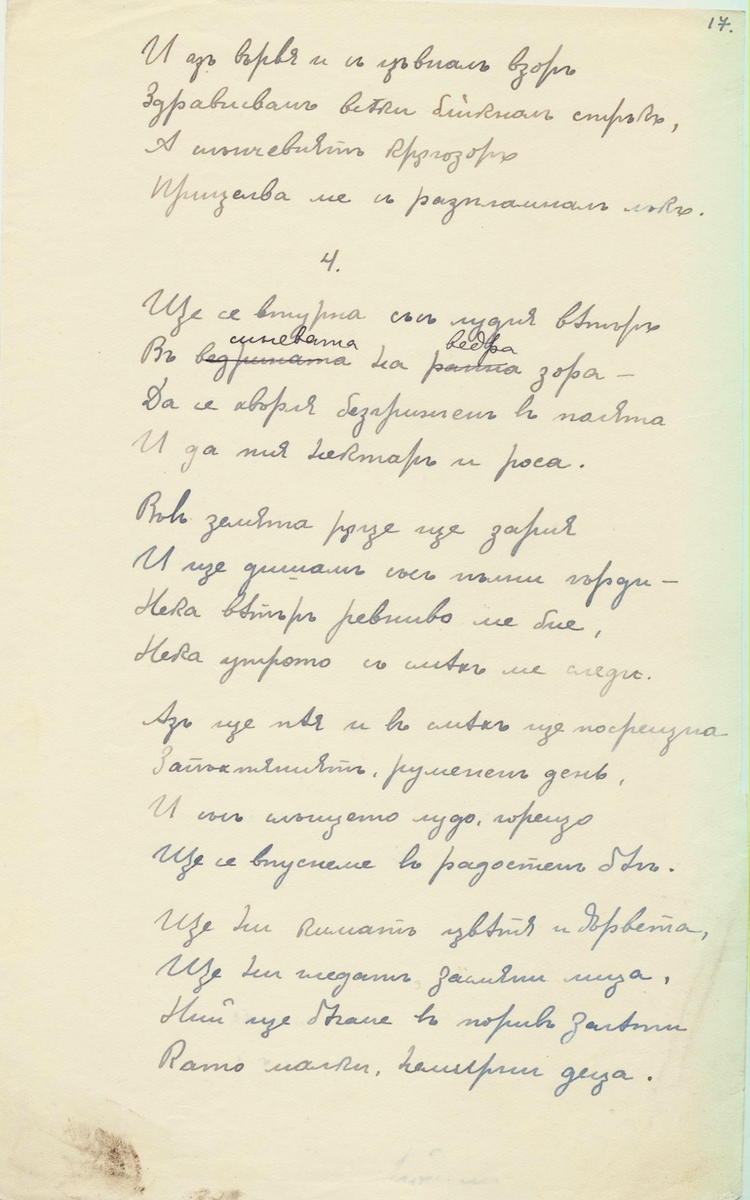 17.
И азъ вървя и съ цъвналъ взоръ
Здрависвамъ всѣки бликналъ стръкъ,
А слънчевиятъ кръгозоръ
Прицелва ме съ разпламналъ лъкъ.
4.
Ще се втурна със лудия вѣтъръ
синевата ведра
Въ ведрината на ранна зора —
Да се хвърля безгриженъ въ полята
И да пия нектаръ и роса.
Въвъ земята ръце ще зария
И ще дишамъ със пълни гърди —
Нека вѣтъръ ревниво ме бие,
Нека утрото съ смѣхъ ме следи.
Азъ ще пѣя и въ смѣхъ ще посрещна
румененъ день,
И със слънцето лудо, горещо
Ще се впуснеме въ радостенъ бѣгъ.
Ще ни киматъ цвѣтя и дървета,
Ще ни гледатъ засмяни лица,
Ний ще бѣгаме въ поривъ залѣтни
Като малки, немирни деца.